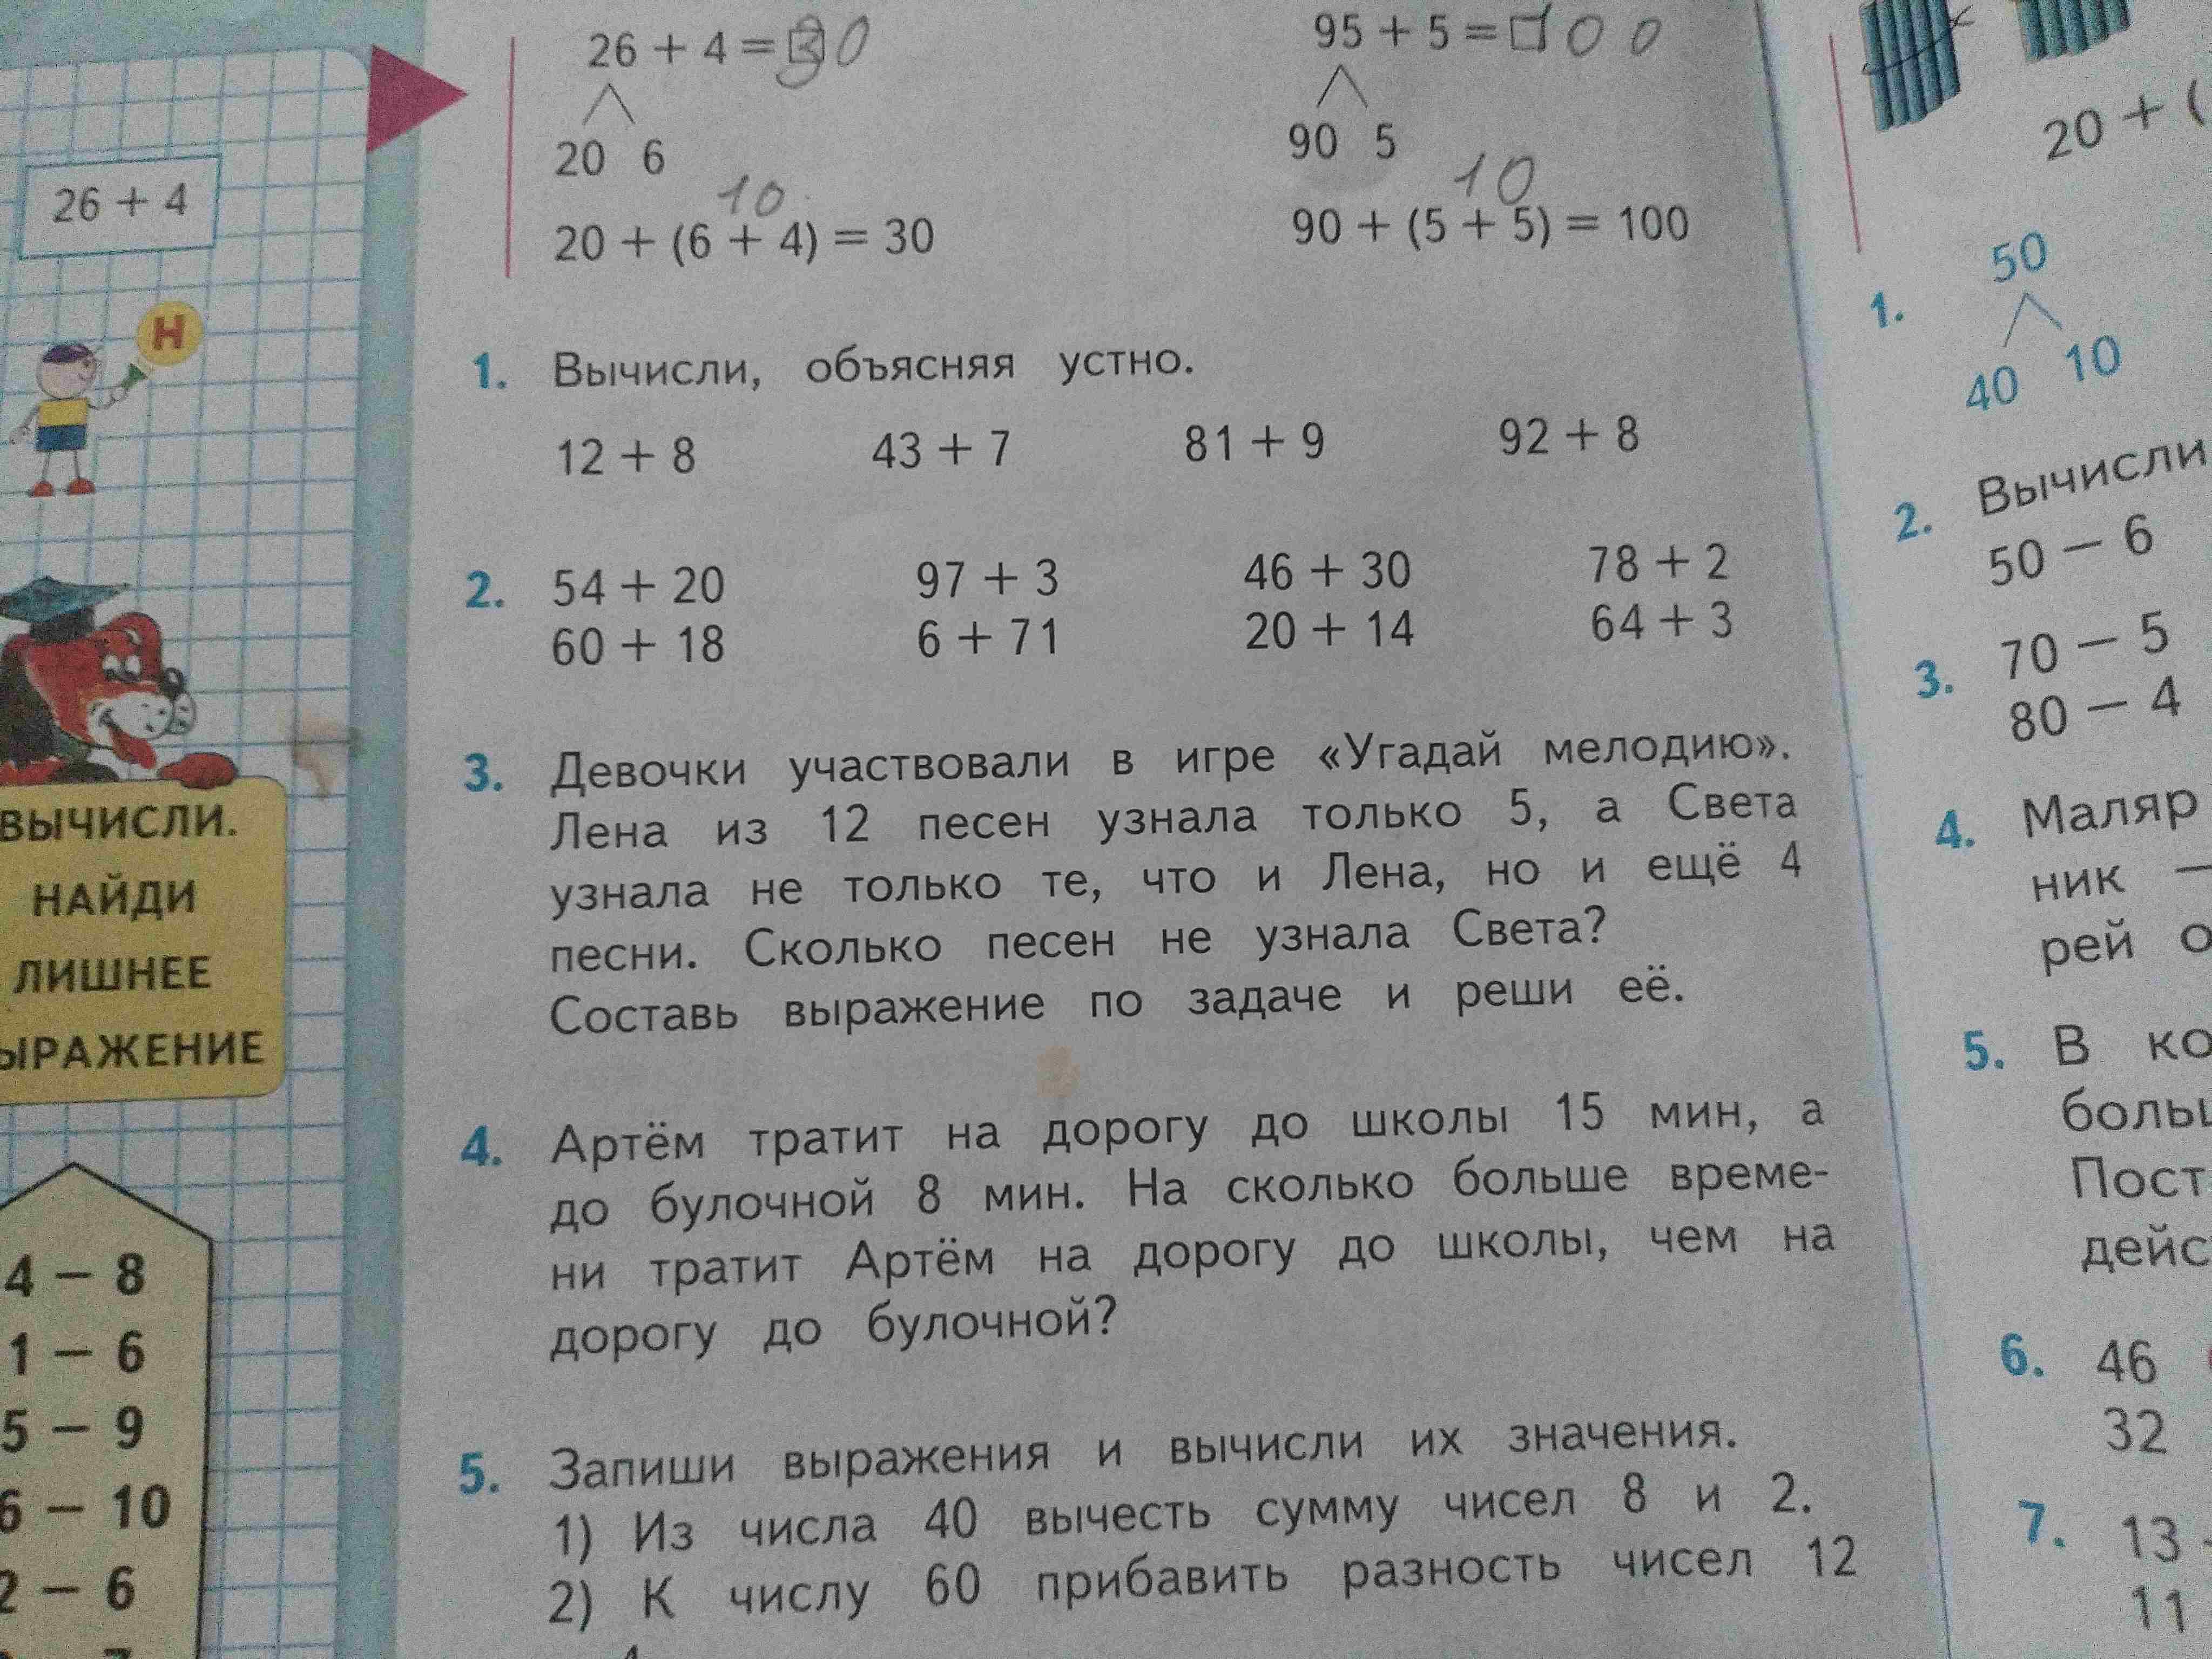 26 + 4 = 30
20 6
10
20 + (6 + 4) = 30
95 + 5 = 100
90 5
10
90 + (5 + 5) = 100
26 + 4
Н
1. Вычисли, объясняя устно.
12 + 8 43 + 7 81 + 9 92 + 8
2. 54 + 20 97 + 3 46 + 30 78 + 2
60 + 18 6 + 71 20 + 14 64 + 3
3. Девочки участвовали в игре «Угадай мелодию».
Лена из 12 песен узнала только 5, а Света
узнала не только те, что и Лена, но и ещё 4
песни. Сколько песен не узнала Света?
Составь выражение по задаче и реши её.
4. Артём тратит на дорогу до школы 15 мин, а
до булочной 8 мин. На сколько больше време-
ни тратит Артём на дорогу до школы, чем на
дорогу до булочной?
5. Запиши выражения и вычисли их значения.
1) Из числа 40 вычесть сумму чисел 8 и 2.
2) К числу 60 прибавить разность чисел 12
ВЫЧИСЛИ.
НАЙДИ
ЛИШНЕЕ
ЫРАЖЕНИЕ
4 − 8
1 − 6
5 − 9
6 − 10
2 − 6
20 + (
1. 50
40 10
2. Вычисли
50 − 6
3. 70 − 5
80 − 4
4. Маляр
ник —
рей о
5. В ко
больш
Пост
дейс
6. 46
32
7. 13
11